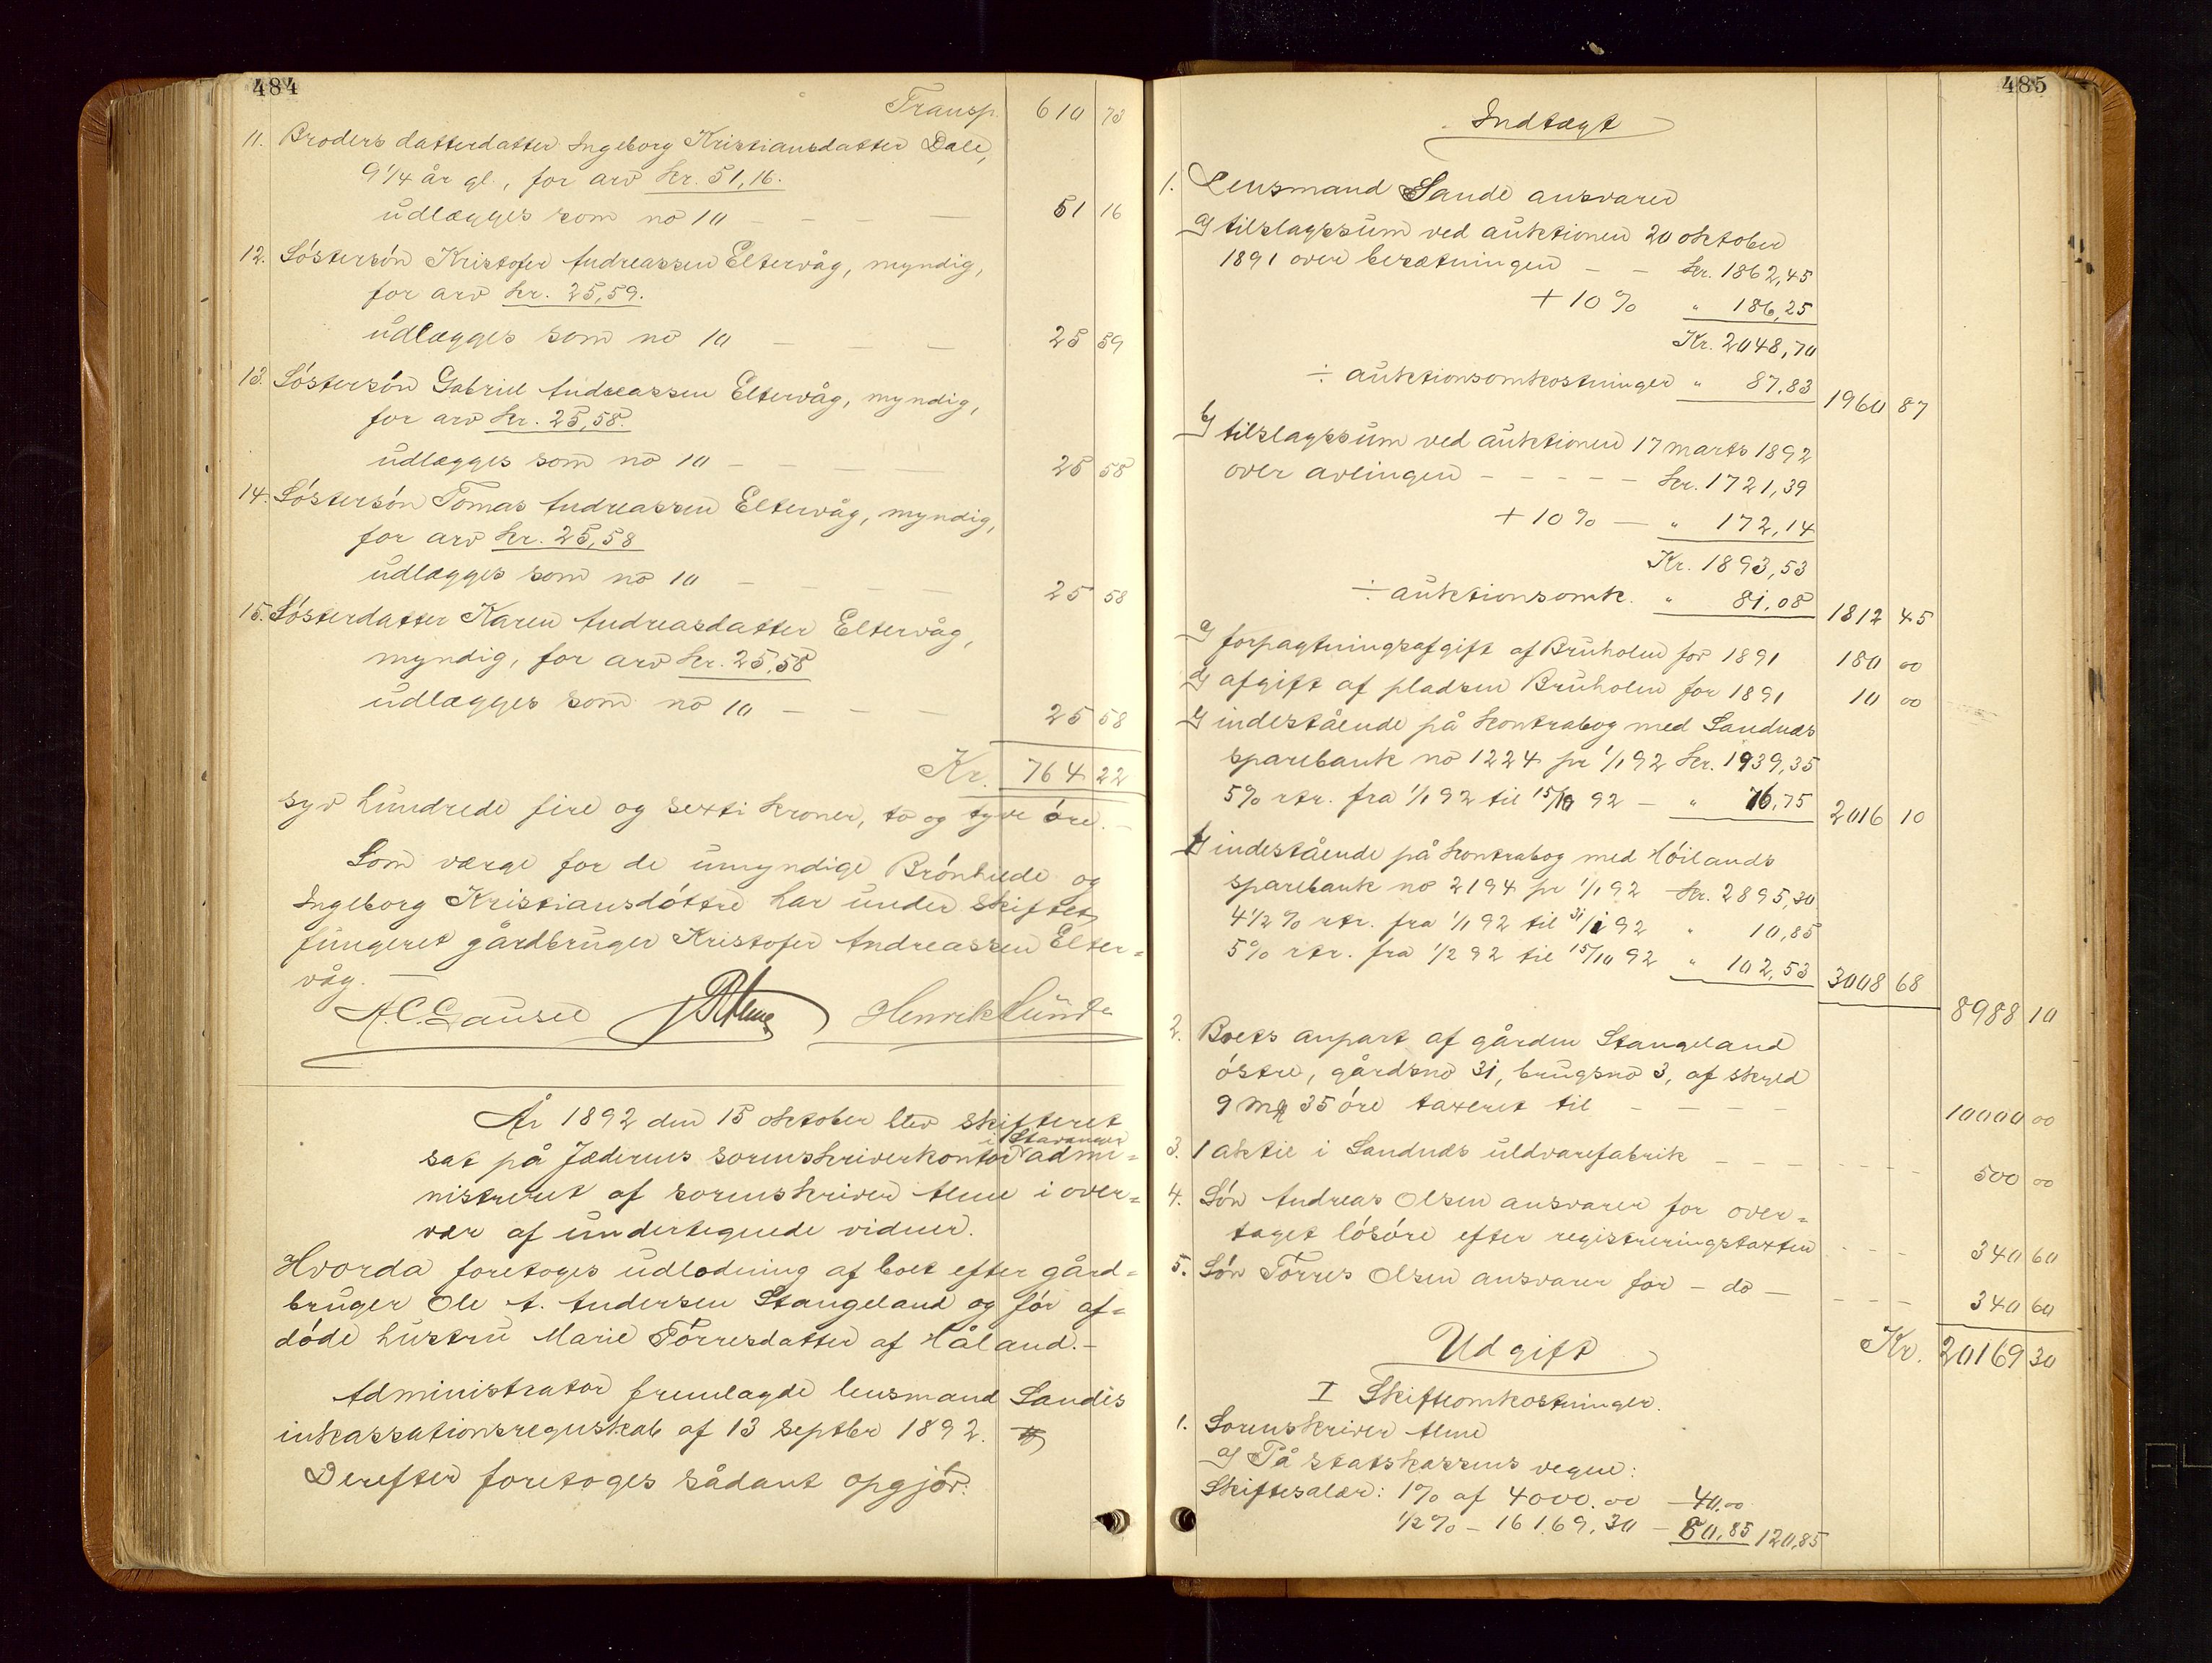 484
Transp. 610 73
11. Broders datterdatter Ingeborg Kristiansdatter Dale,
9 1/4 år gl., for arv kr. 51,16.
udlægges som no 10 — — — — 51 16
12. Søstersøn Kristofer Andreassen Eltervåg, myndig,
for arv kr. 25,59.
udlægges som no 10 — — — 25 59
13. Søstersøn Gabriel Andreassen Eltervåg, myndig,
for arv kr. 25,58.
udlægges som no 10 — — — — 25 58
14. Søstersøn Tomas Andreassen Eltervåg, myndig,
for arv kr. 25,58
udlægges som no 10 — — — 25 58
15. Søsterdatter Karen Andreasdatter Eltervåg,
myndig, for arv kr. 25,58
udlægges som no 10 — — — 25 58
Kr. 764 22
syv hundrede fire og sexti kroner, to og tyve øre. —
Som værge for de umyndige Brønhilde og
Ingeborg Kristiansdøttre har under skiftet
fungeret gårdbruger Kristofer Andreassen Elter=
våg. —
A. C. Henrik Lunde
År 1892 den 15 oktober blev skifteret
i Stavanger
sat på Jæderens sorenskriverkontor admi=
nistreret af sorenskriver Alme i over=
vær af undertegnede vidner.
Hvorda foretoges udlodning af boet efter gård=
bruger Ole A. Andersen Stangeland og før af=
døde hustru Marie Tørresdatter af Håland. —
Administrator fremlagde lensmand Sandes
inkassationsregnskab af 13 septbr 1892.
Derefter foretoges sådant opgjør:
485
Indtægt
1. Lensmand Sande ansvarer
a) tilslagssum ved auktionen 20 oktober
1891 over besætningen — — kr. 1862,45
+ 10 % " 186,25
Kr. 2048,70
÷ auktionsomkostninger " 87,83 1960 87
b) tilslagssum ved auktionen 17 marts 1892
over avlingen — — — — — kr. 1721,39
+ 10 % — " 172,14
Kr. 1893,53
÷ auktionsomk. " 81,08 1812 45
c) forpagtningsafgift af Bruholm for 1891 180 00
d) afgift af pladsen Bruholm for 1891 10 00
e) indestående på kontrabog med Sandnes
sparebank no 1224 pr 1/1 92 kr. 1939,35
5 % rtr. fra 1/1 92 til 15/10 92 — " 76,75 2016 10
f) indestående på kontrabog med Høilands
sparebank no 2194 pr 1/1 92 kr. 2895,30
4 1/2 % rtr. fra 1/1 92 til 31/1 92 " 10,85
5 % rtr. fra 1/2 92 til 15/10 92 " 102,53 3008 68
8988 10
2. Boets anpart af gården Stangeland
østre, gårdsno 31, brugsno 3, af skyld
9 mk 35 øre taxeret til — — — — 10000 00
3. 1 aktie i Sandnes uldvarefabrik — — — — — — 500 00
4. Søn Andreas Olsen ansvarer for over=
taget løsøre efter registreringstaxten — — — 340 60
5. Søn Tørres Olsen ansvarer for — do — — — — 340 60
Kr. 20169 30
Udgift
I Skifteomkostninger.
1. Sorenskriver Alme
a) På statskassens vegne:
Skiftesalær: 1 % af 4000.00 — 40.00
1/2 % — 16169,30 — 80,85 120,85